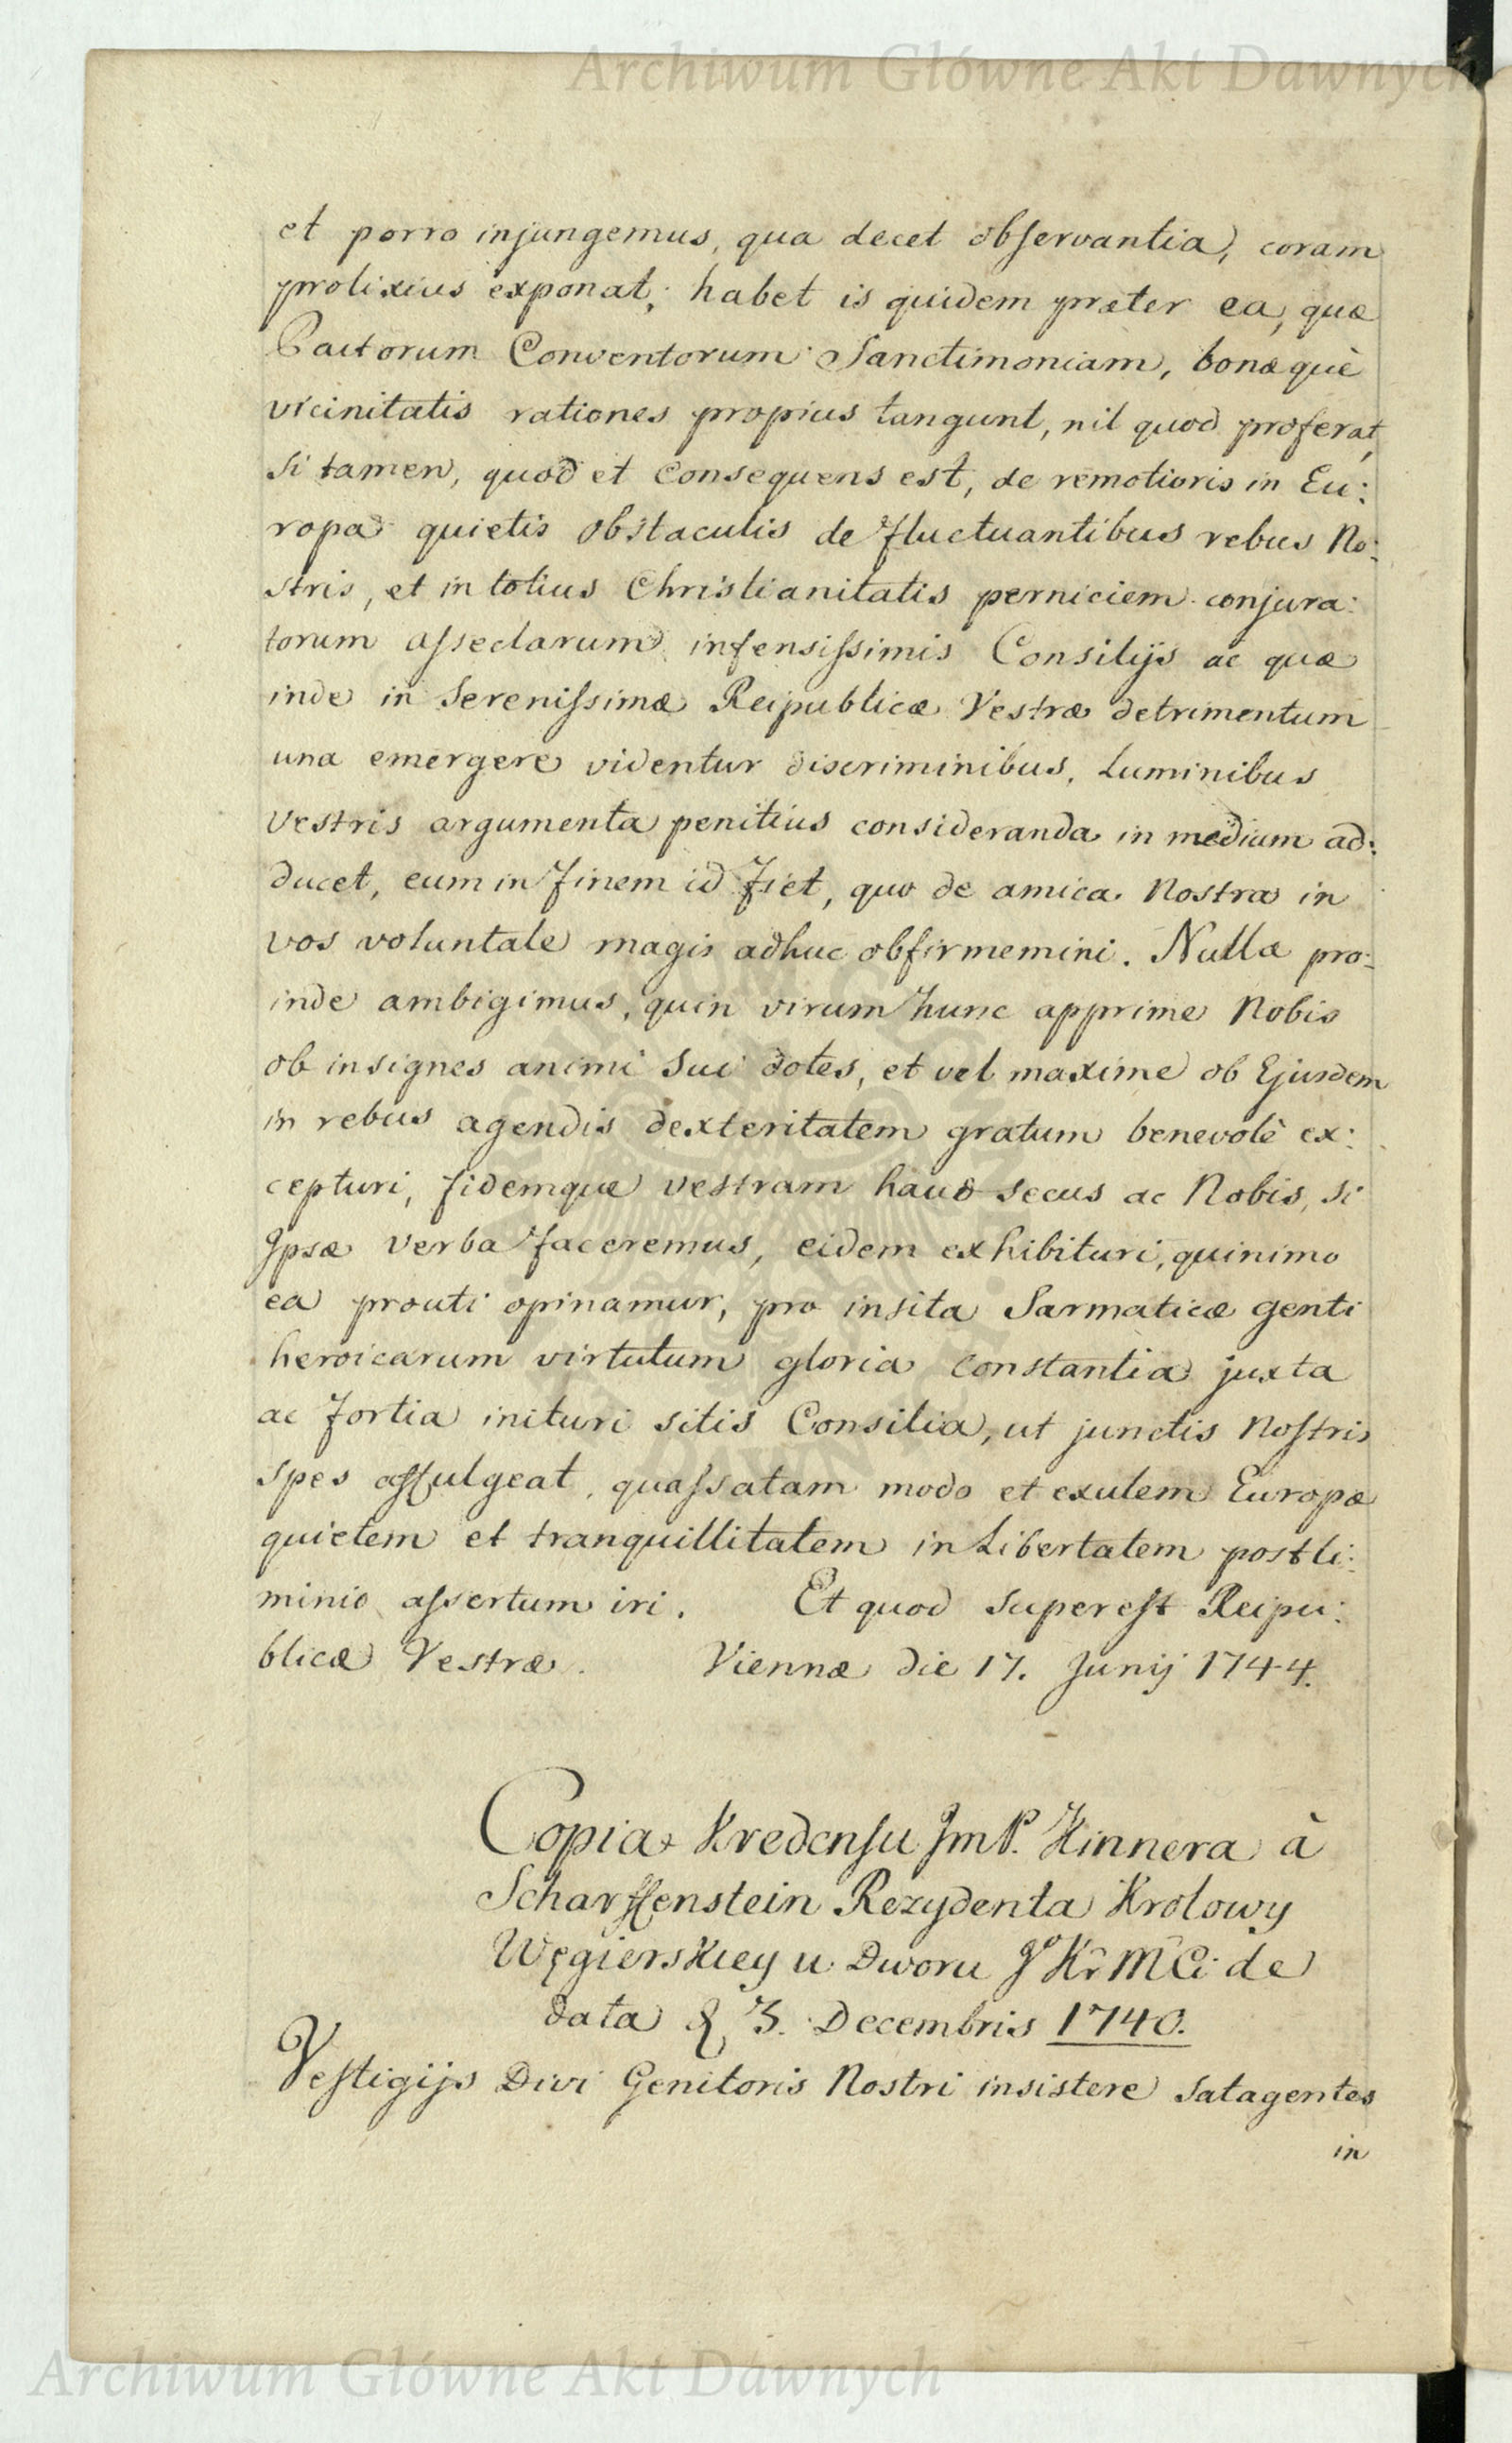 Archiwum Główne Akt Dawnych
et porro injungemus, qua decet observantia, coram
prolixius exponat; habet is quidem præter ea, quæ
Pactorum Conventorum Sanctimoniam, bonæquè
vicinitatis rationes propius tangunt, nil quod proferat,
Si tamen, quod et consequens est, de remotioris in Eu:
ropa quietis obstaculis de fluctuantibus rebus No:
stris, et in totius Christianitatis perniciem conjura:
torum asseclarum infensissimis Consilijs ac quæ
inde in Serenissimæ Reipublicæ Vestræ detrimentum
una emergere videntur discriminibus, Luminibus
Vestris argumenta penitius consideranda in medium ad:
ducet, eum in finem id fiet, quo de amica Nostra in
vos voluntate magis adhuc obfirmemini. Nullæ pro:
inde ambigimus, quin virum hunc apprime Nobis
ob insignes animi sui dotes, et vel maxime ob Ejusdem
in rebus agendis dexteritatem gratum benevolè ex:
cepturi, fidemque vestram haud secus ac Nobis, si
Ipsæ verba faceremus, eidem exhibituri, quinimo
ea prouti opinamur, pro insita Sarmaticæ genti
heroicarum virtutum gloria constantia juxta
ac fortia inituri sitis Consilia, ut junctis Nostris
spes affulgeat, quassatam modo et exulem Europæ
quietem et tranquillitatem in Libertatem postli:
minio assertum iri. Et quod superest Reipu:
blicæ Vestræ. Viennæ die 17. Junij 1744.
Copia Kredensu JmP. Kinnera à
Scharffenstein Rezydenta Krolowy
Węgierskiey u Dworu Jo Kr MCi de
data 3. Decembris 1740.
Vestigijs Divi Genitoris Nostri insistere satagentes
in
Archiwum Główne Akt Dawnych